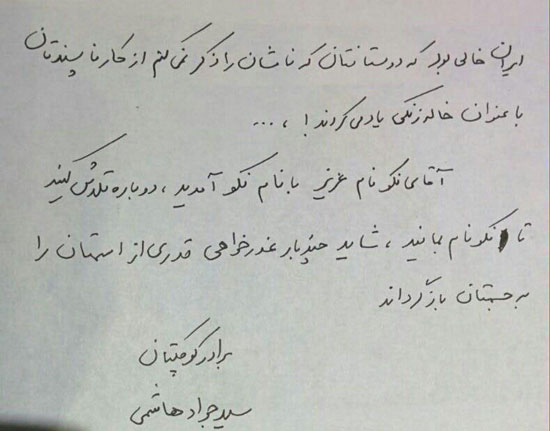 ایران خالی بود که دوستانتان که نامشان را ذکر نمی کنم از کار ناپسندتان
با عنوان خاله زنکی یاد می کردند! ، ...
آقای نکونام عزیز با نام نکو آمدید ، دوباره تلاش کنید
تا نکونام بمانید ، شاید چندبار عذرخواهی قدری از اسمتان را
به جسمتان بازگرداند
برادر کوچکتان
سید جواد هاشمی